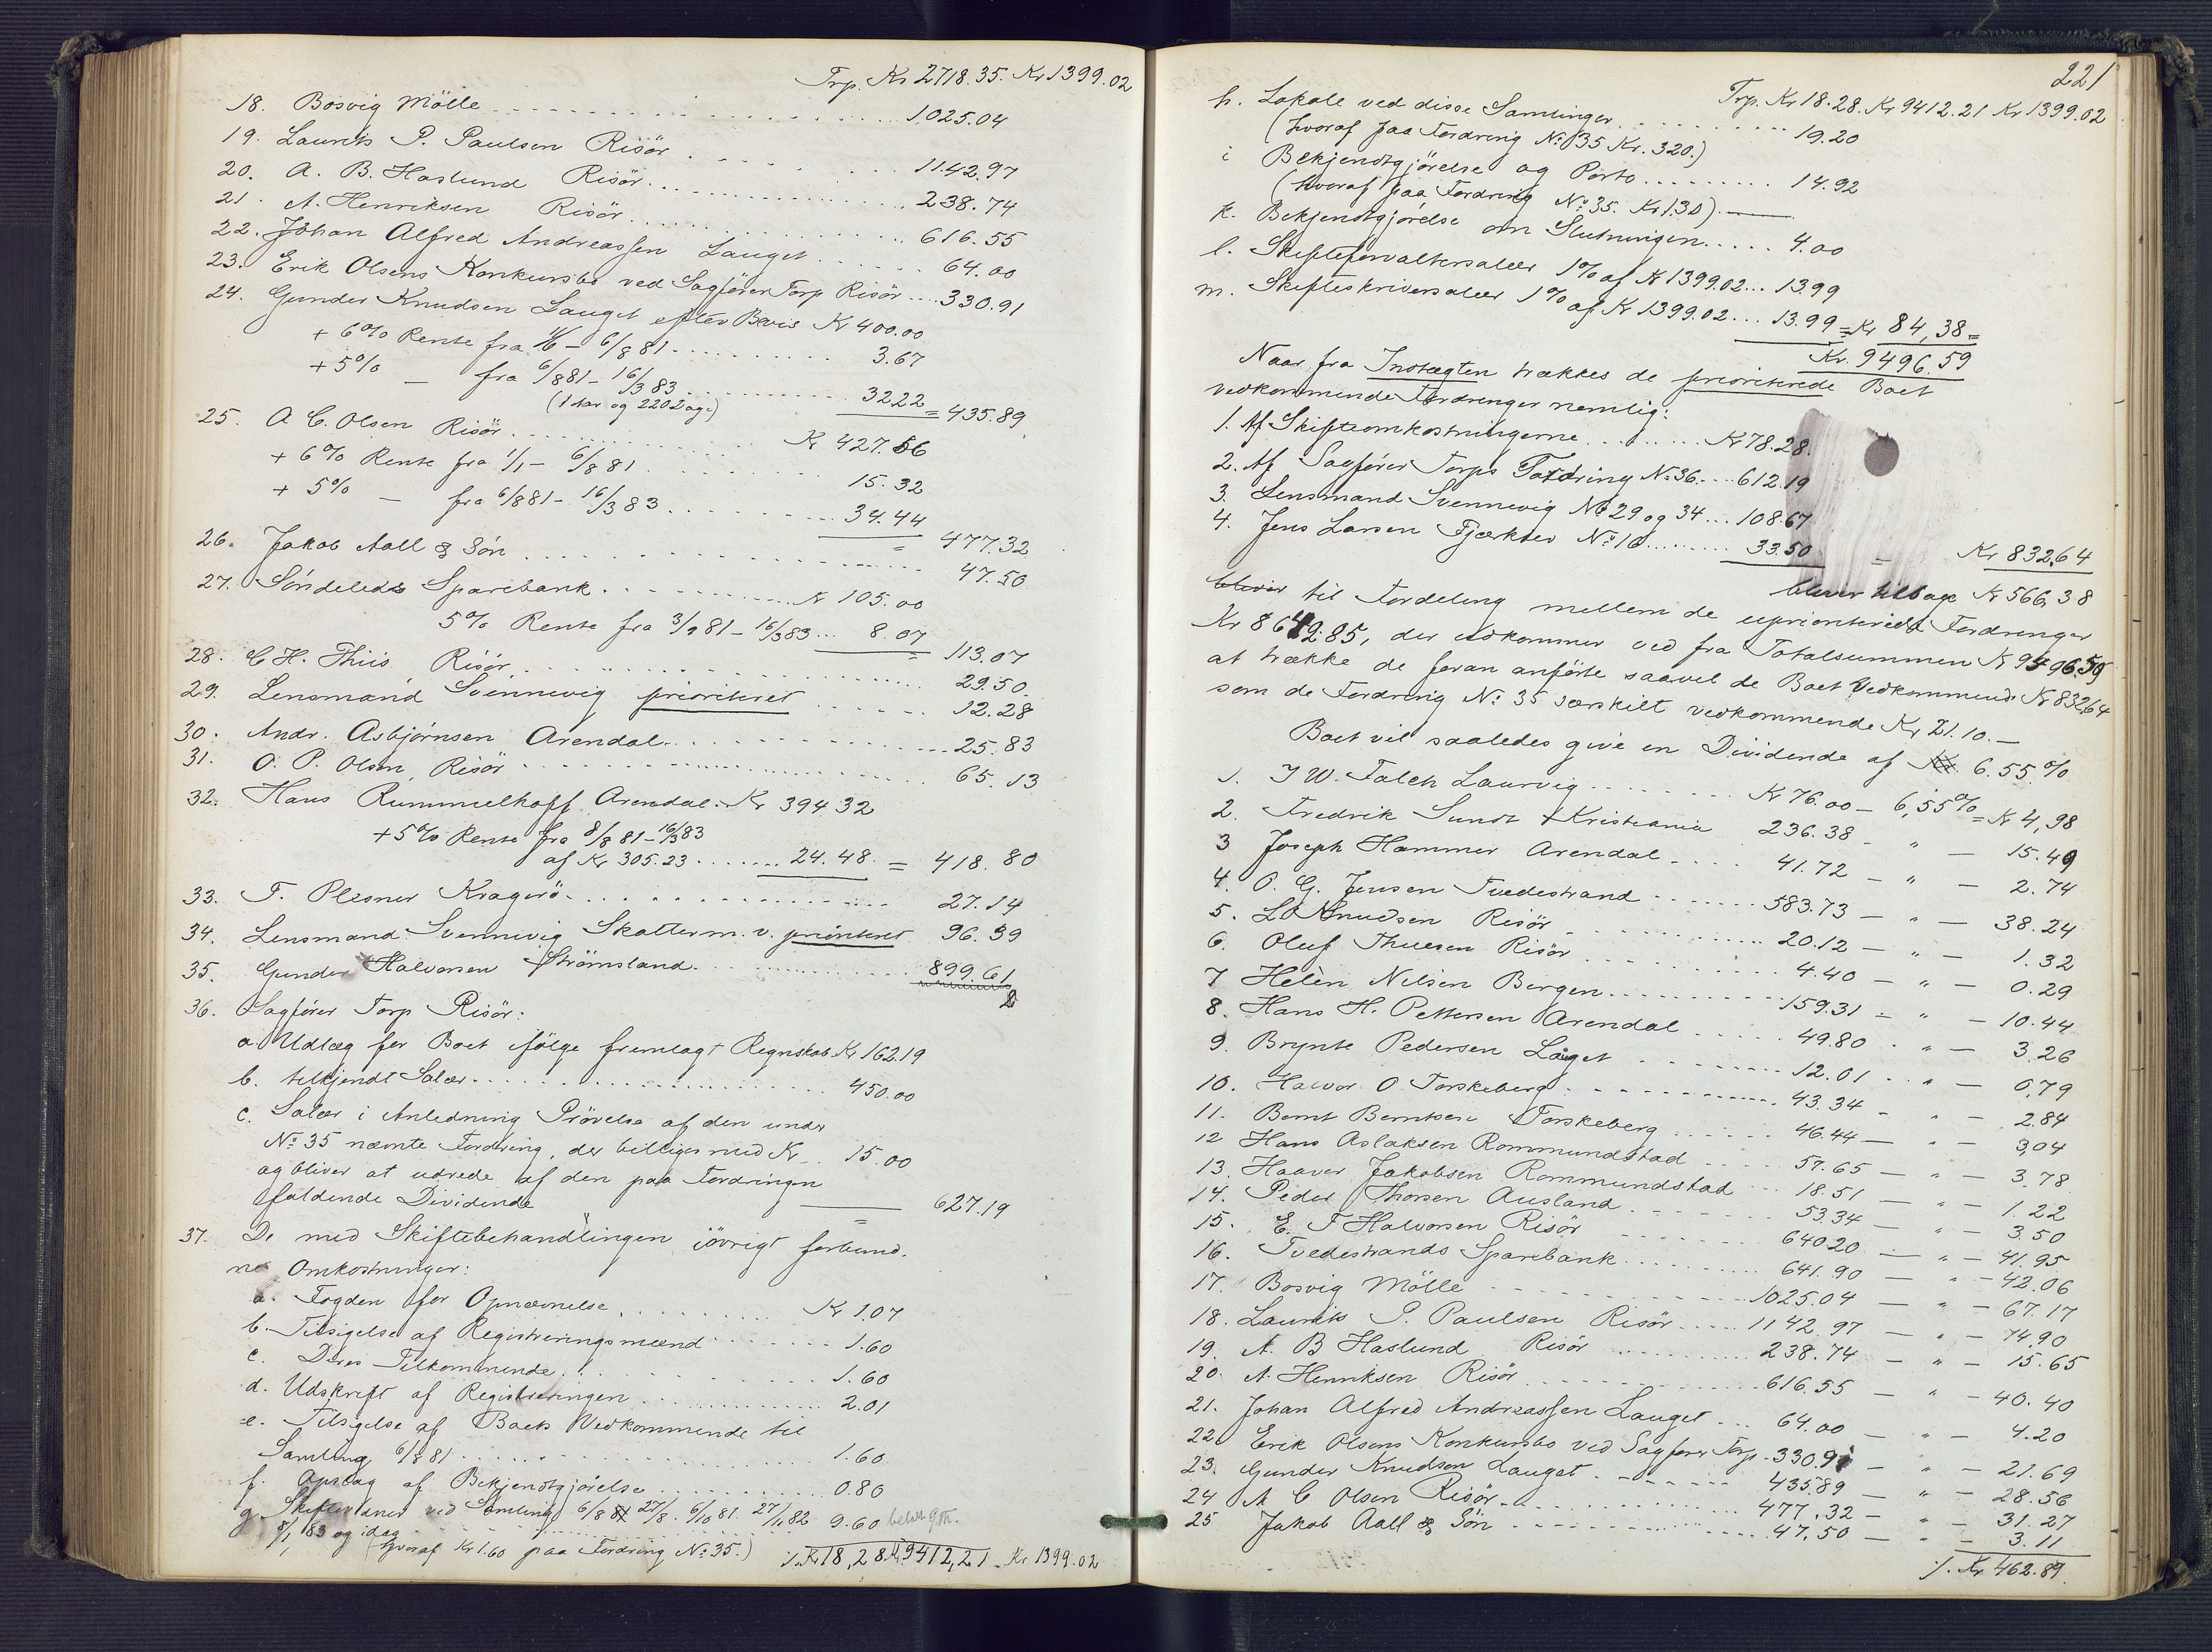 Trp. Kr 2718.35. Kr 1399.02
18. Bosvig Mölle 1025.04
19. Laurits P. Paulsen Risör 1142.97
20. A. B. Haslund Risör 238.74
21. A. Henriksen Risör 616.55
22. Johan Alfred Andreassen Lauget 64.00
23. Erik Olsens Konkursbo ved Sagfører Torp Risör 330.91
24. Gunder Knudsen Lauget efter Bevis Kr 400.00
+ 6% Rente fra 11/6 – 6/8 81 3.67
+ 5% — fra 6/8 81 – 16/3 83 32.22 = 435.89
(1 Aar og 220 Dage)
25. A C. Olsen Risör Kr 427.56
+ 6% Rente fra 1/1 – 6/8 81 15.32
+ 5% — fra 6/8 81 – 16/3 83 34.44 = 477.32
26. Jakob Aall & Sön 47.50
27. Söndeleds Sparebank Kr 105.00
5% Rente fra 3/9 81 – 16/3 83 8.07 = 113.07
28. C H. Thiis Risör 29.50.
29. Lensmand Svennevig prioriteret 12.28
30. Andr. Asbjørnsen Arendal 25.83
31. O. P. Olsen, Risör 65.13
32. Hans Rummelhoff Arendal. Kr 394.32
+ 5% Rente fra 8/8 81 – 16/3 83
af Kr 305.23 24.48. = 418.80
33. F. Plesner Kragerö 27.14
34. Lensmand Svennevig Skatter m. v. prioriteret 96.39
35. Gunder Halvorsen Strømsland 899.61
36. Sagfører Torp Risör:
a. Udlæg for Boet ifölge fremlagt Regnskab Kr 162.19
b. tilkjendt Salær 450.00
c. Salær i Anledning Prövelse af den under
No 35 nævnte Fordring, der billiges med Kr 15.00
og bliver at udrede af den paa Fordringen
faldende Dividende 627.19
37. De med Skiftebehandlingen iövrigt forbund.
ne Omkostninger:
a. Fogden for Opnævnelse Kr 1.07
b. Tilsigelse af Registreringsmænd 1.60
c. Deres Tilkommende 1.60
d. Udskrift af Registreringen 2.01
e. Tilsigelse af Boets Vedkommende til
Samling 6/8 81 1.60
f. Opslag af Bekjendtgjørelse 0.80
g. Skiftevidner ved Samling 6/8 81 27/8. 6/10 81. 27/11 82 9.60
8/1 83 og idag
(hvoraf Kr 1.60 paa Fordring No 35.) ./. Kr 18,28 Kr 9412,21 Kr 1399.02
221
Trp. Kr 18.28. Kr 9412.21 Kr 1399.02
h. Lokale ved disse Samlinger 19.20
(hvoraf paa Fordring No 35 Kr. 3.20.)
i Bekjendtgjörelse og Porto 14.92
(hvoraf paa Fordring No 35. Kr 1.30).
k. Bekjendtgjörelse om Slutningen 4.00
l. Skifteforvaltersalær 1% af Kr 1399.02 13.99
m. Skifteskriversalær 1% af Kr 1399.02 13.99 = Kr 84,38 =
Kr. 9496.59
Naar fra Indtægten trækkes de prioriterede Boet
vedkommende Fordringer nemlig:
1. Af Skifteomkostningerne Kr 78.28.
2. Af Sagfører Torps Fordring No 36 612.19
3. Lensmand Svennevig No 29 og 34 108.67
4. Jens Larsen Fjærkter No 16 33.50 — Kr 832,64
bliver tilbage Kr 566,38
bliver til Fordeling mellem de uprioriterede Fordringer
Kr 8642.85, der udkommer ved fra Totalsummen Kr 9496.59
at trække de foran anførte saavel de Boet Vedkommende Kr 832,64
som de Fordring No 35 særskilt vedkommende Kr 21.10.—
Boet vil saaledes give en Dividende af 6.55%
1. J W. Falch Laurvig Kr 76.00 — 6,55% = Kr 4,98
2. Fredrik Sundt Kristiania 236.38 — " — 15.49
3 Joseph Hammer Arendal 41.72 — " — 2.74
4. O. G. Jensen Tvedestrand 583.73 — " — 38.24
5. L Knudsen Risör 20.12 — " — 1.32
6. Oluf Thuesen Risör 4.40 — " — 0.29
7 Helen Nilsen Bergen 159.31 — " — 10.44
8. Hans H. Pettersen Arendal 49.80 . " — 3.26
9. Brynte Pedersen Lauget 12.01 . " — 0,79
10. Halvor O Torskeberg 43.34 — " — 2.84
11. Bernt Berntsen Torskeberg 46.44 — " — 3,04
12 Hans Aslaksen Rommundstad 57.65 — " — 3.78
13. Haaver Jakobsen Rommundstad 18.51 — " — 1.22
14. Peder Thorsen Ausland 53.34 — " — 3.50
15. E. F Halvorsen Risör 640.20 — " — 41.95
16. Tvedestrands Sparebank 641.90 — " — 42.06
17. Bosvig Mölle 1025.04 — " — 67.17
18. Laurits P. Paulsen Risör 1142.97 — " — 74.90
19. A. B Haslund Risör 238.74 — " — 15.65
20. A. Henriksen Risör 616.55 — " — 40.40
21. Johan Alfred Andreassen Lauget 64.00 — " — 4.20
22. Erik Olsens Konkursbo ved Sagfører Torp 330.91 — " — 21.69
23. Gunder Knudsen Lauget 435.89 — " — 28.56
24 A C Olsen Risör 477.32 — " — 31.27
25 Jakob Aall & Sön 47.50 — " — 3.11
./. Kr 462.89.